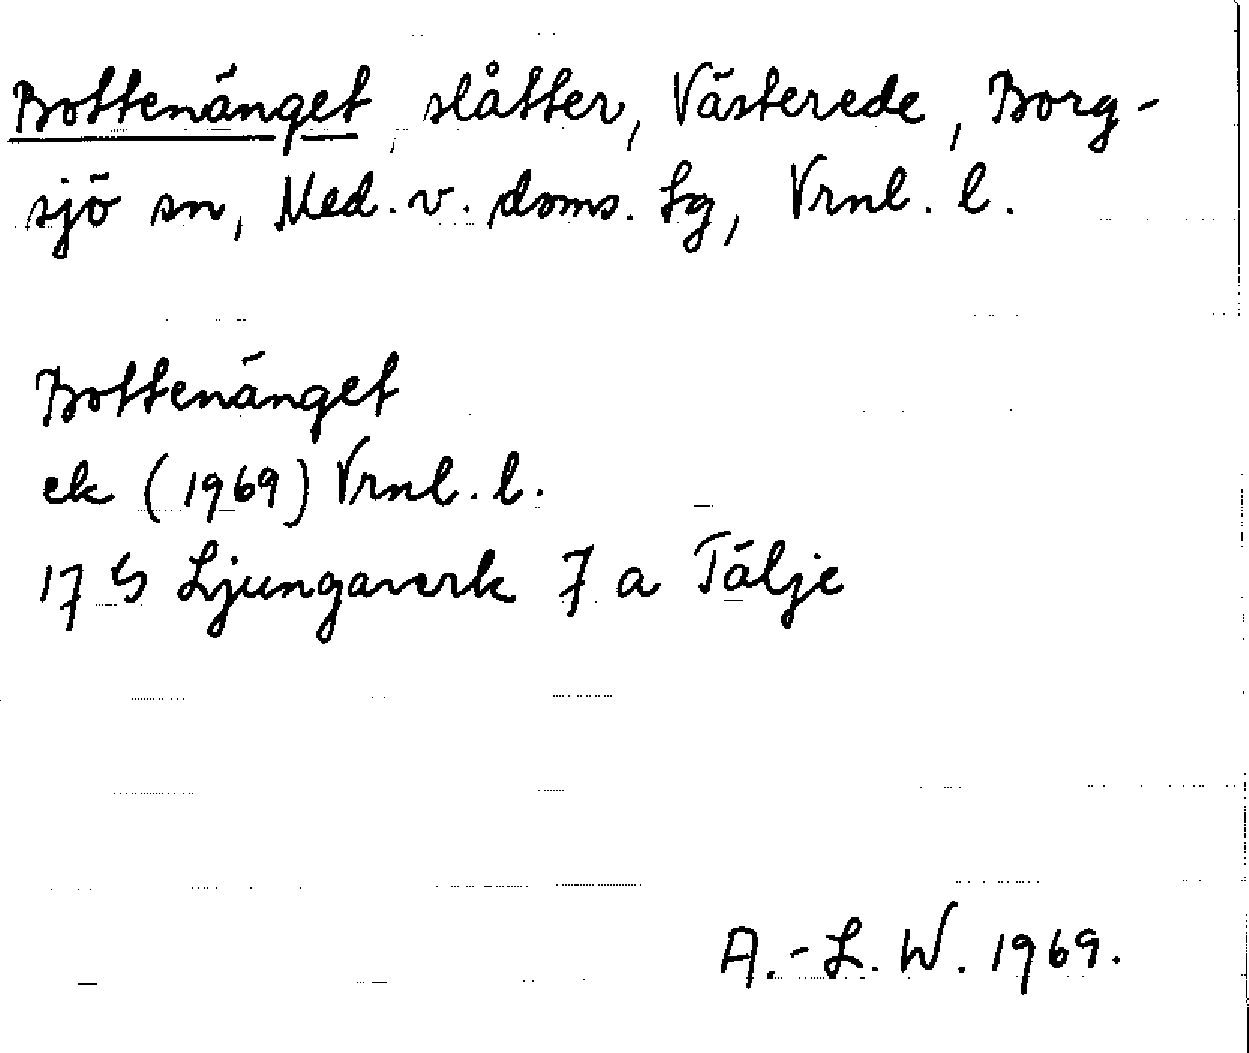 Bottenänget, slåtter, Västerede, Borg-
sjö sn, Med. v. doms. tg, Vrnl. l.
Bottenänget
ek (1969) Vrnl. l.
17 G Ljungaverk 7 a Tälje
A.-L. W. 1969.